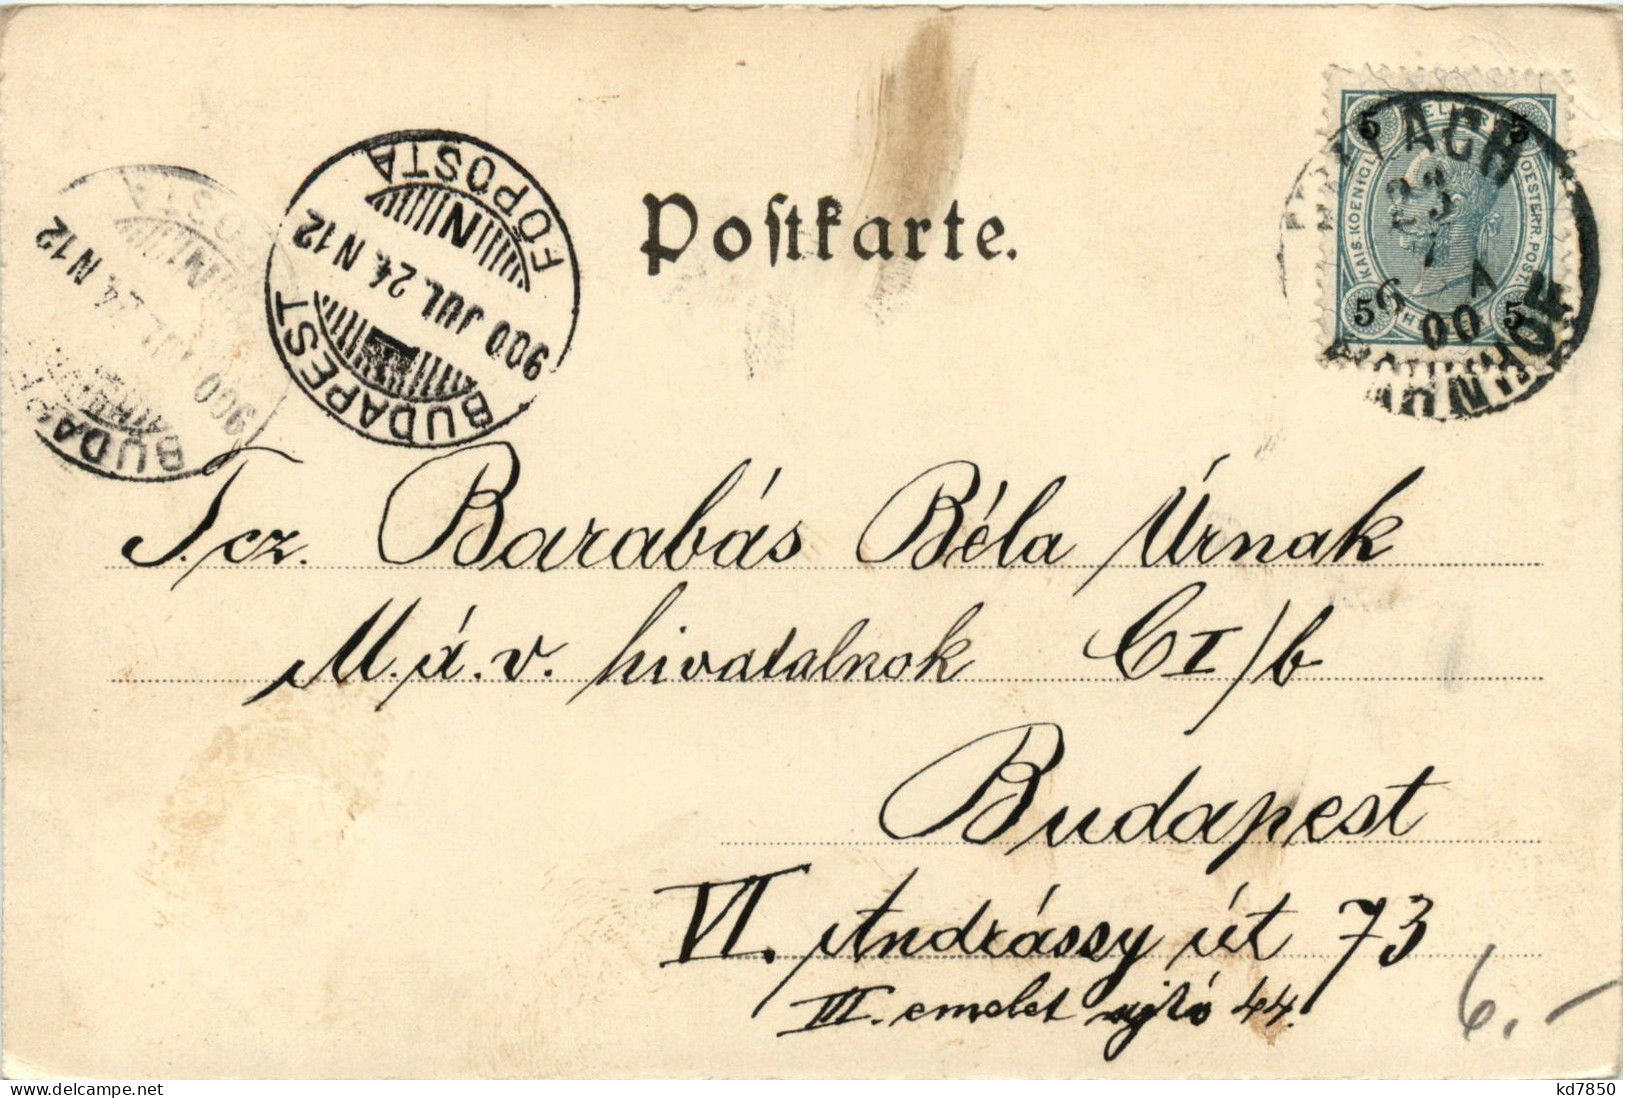 Postkarte.
BUDAPEST
FŐPOSTA
N
900 JUL. 24. N 12
BUDAPEST
900 JUL. 24. N 12
VILLACH
23
7
6 A
00
KAIS. KOENIGL. OESTERR. POST
5 5
5 5
T. cz. Barabás Béla Úrnak
M. á. v. hivatalnok CI/b
Budapest
VI. Andrássy út 73
III. emelet ajtó 44.
6.-
delcampe.net
kd7850